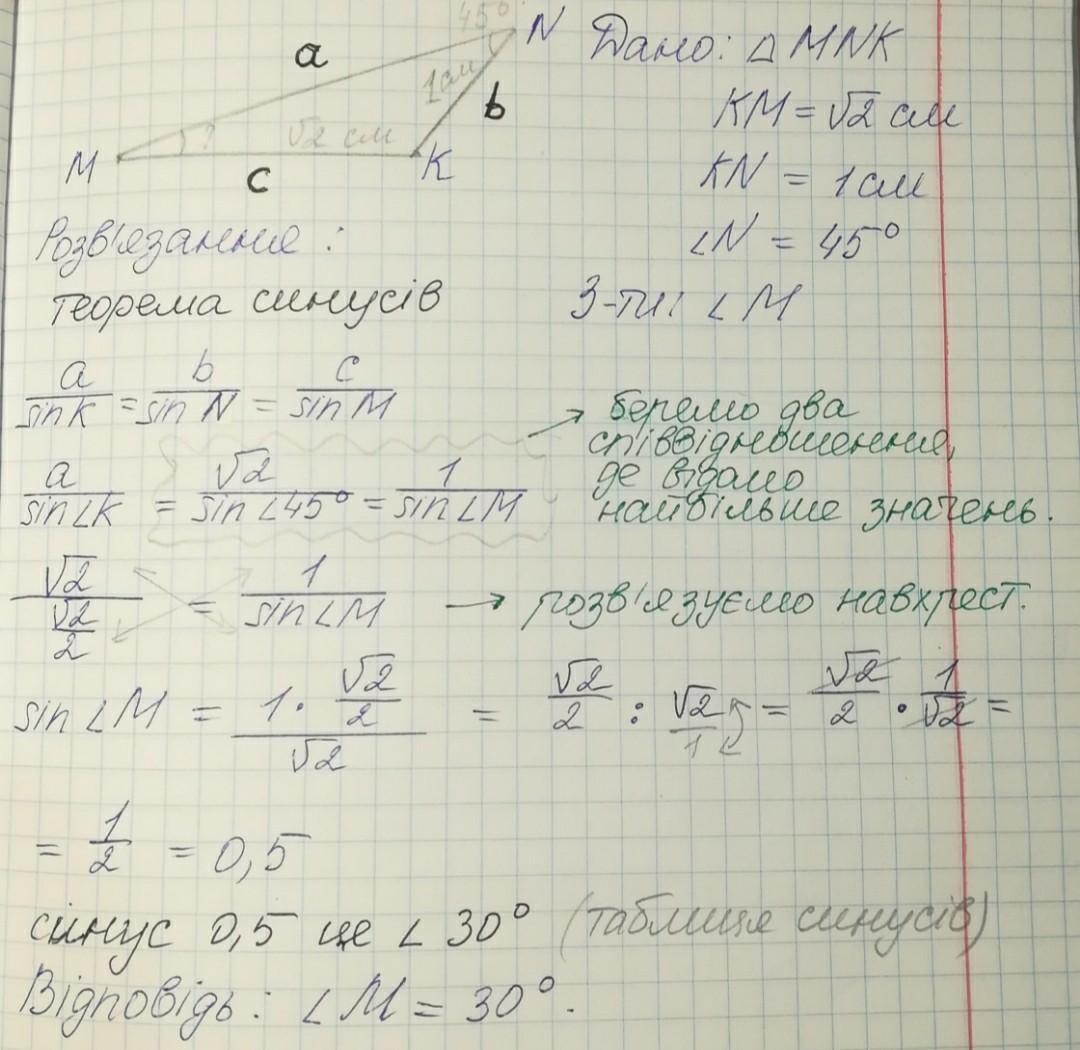 45° N Дано: △ MNK
a 1 см b KM = √2 см
M ? √2 см K
c KN = 1 см
Розв'язання: ∠N = 45°
теорема синусів З-ти: ∠M
a/sin K = b/sin N = c/sin M
→ беремо два
співвідношення,
де відомо
найбільше значень.
a/sin∠K = √2/sin∠45° = 1/sin∠M
√2/(√2/2) = 1/sin∠M → розв'язуємо навхрест.
sin∠M = (1·√2/2)/√2 = √2/2 : √2/1 = √2/2 · 1/√2 =
= 1/2 = 0,5
синус 0,5 це ∠30° (таблиця синусів)
Відповідь: ∠M = 30°.